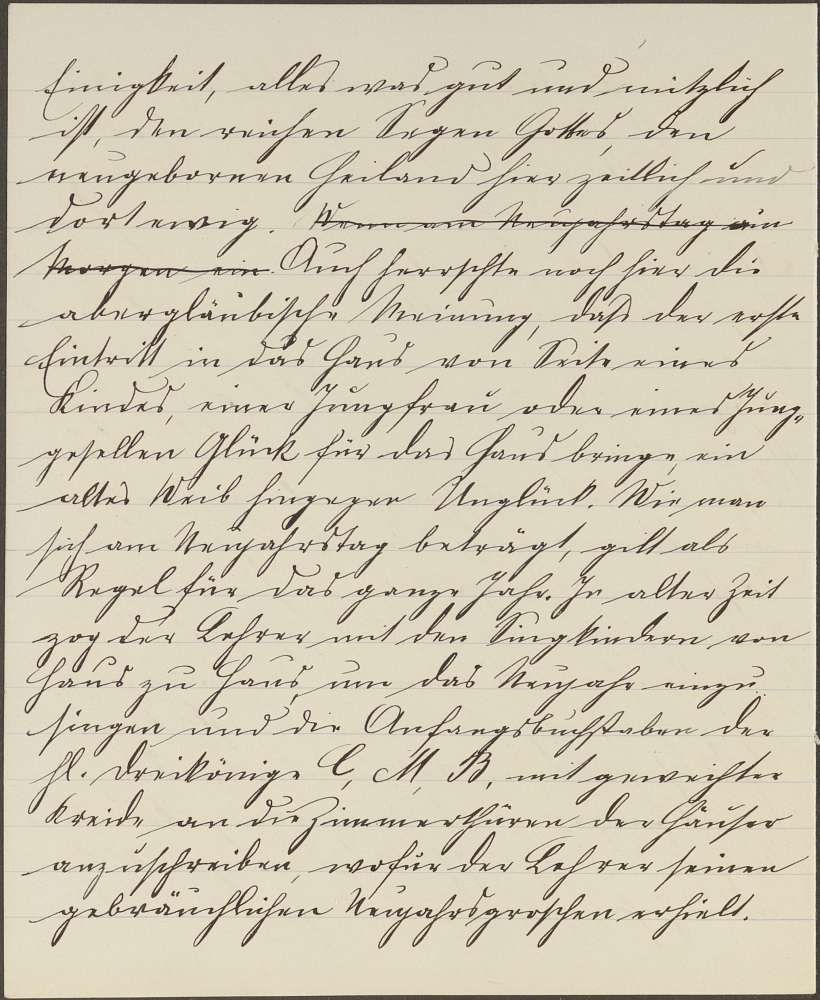 Einigkeit, alles was gut und nützlich
ist, den reichen Segen Gottes, den
neugebornen Heiland hier zeitlich und
dort ewig. Wenn am Neujahrstag am
Morgen ein. Auch herrschte noch hier die
abergläubische Meinung, daß der erste
Eintritt in das Haus von Seite eines
Kindes, einer Jungfrau oder eines Jung-
gesellen Glück für das Haus bringe, ein
altes Weib hingegen Unglück. Wie man
sich am Neujahrstag beträgt, gilt als
Regel für das ganze Jahr. In alter Zeit
zog der Lehrer mit den Singkindern von
Haus zu Haus, um das Neujahr einzu
singen und die Anfangsbuchstaben der
hl. Dreikönige C, M, B, mit geweihter
Kreide an die Zimmerthüren der Häuser
anzuschreiben, wofür der Lehrer seinen
gebräuchlichen Neujahrsgroschen erhielt.